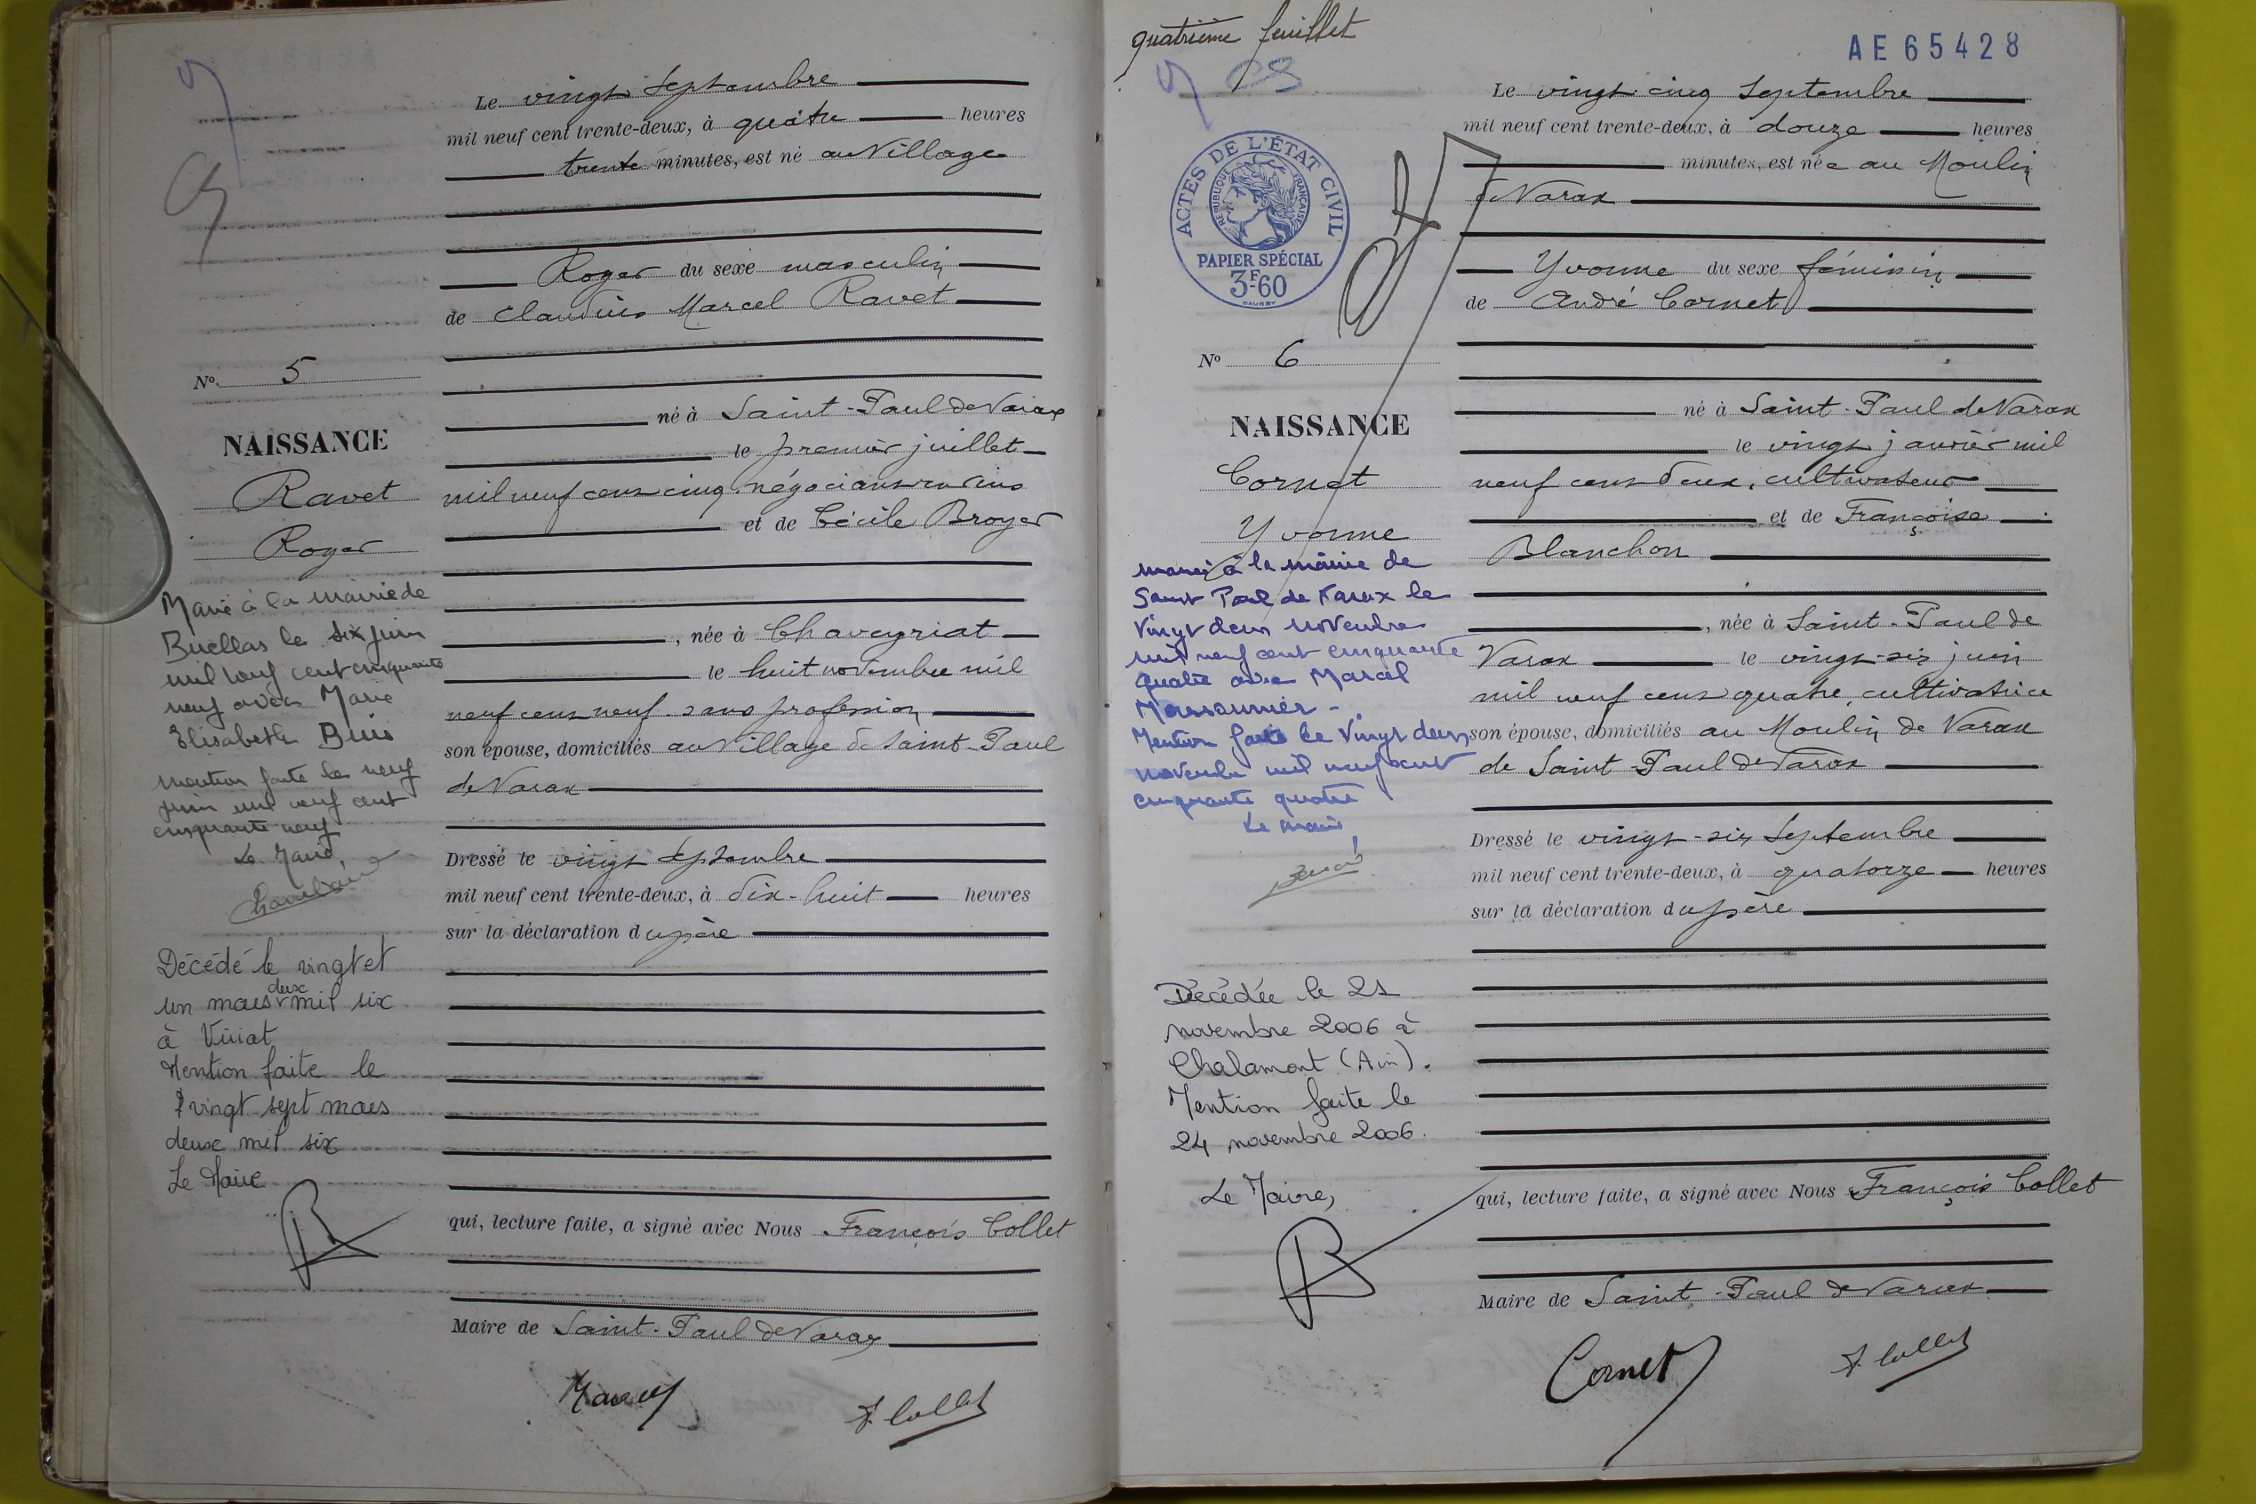 Le vingt Septembre
mil neuf cent trente-deux, à quatre heures
trente minutes, est né au Village
Roger du sexe masculin
de Claudius Marcel Ravet
Nº 5
né à Saint-Paul de Varax
NAISSANCE
le premier juillet
Ravet
mil neuf cent cinq, négociant en vins
et de Cécile Broyer
Roger
Marié à la mairie de
Buellas le six juin
mil neuf cent cinquante
neuf avec Marie
Elisabeth Buis
mention faite le neuf
juin mil neuf cent
cinquante neuf
Le Maire,
, née à Chaveyriat
le huit novembre mil
neuf cent neuf, sans profession
son épouse, domiciliés au Village de Saint-Paul
de Varax
Dressé le vingt Septembre
mil neuf cent trente-deux, à dix-huit heures
sur la déclaration du père
Décédé le vingt et
un mars deux mil six
à Viriat
Mention faite le
vingt sept mars
deux mil six
Le Maire
qui, lecture faite, a signé avec Nous François Collet
Maire de Saint-Paul de Varax
F. Collet
quatrième feuillet
AE 65428
Le vingt cinq Septembre
mil neuf cent trente-deux, à douze heures
minutes, est née au Moulin
de Varax
ACTES DE L'ÉTAT CIVIL
RÉPUBLIQUE FRANÇAISE
PAPIER SPÉCIAL
3F60
Yvonne du sexe féminin
de André Cornet
Nº 6
né à Saint-Paul de Varax
NAISSANCE
le vingt janvier mil
Cornet
neuf cent deux, cultivateur
et de Françoise
Yvonne
Blanchon
mariée à la mairie de
Saint Paul de Varax le
vingt deux novembre
mil neuf cent cinquante
quatre avec Marcel
Massonnier -
Mention faite le vingt deux
novembre mil neuf cent
cinquante quatre
Le maire,
, née à Saint-Paul de
Varax le vingt-six juin
mil neuf cent quatre, cultivatrice
son épouse, domiciliés au Moulin de Varax
de Saint-Paul de Varax
Dressé le vingt-six Septembre
mil neuf cent trente-deux, à quatorze heures
sur la déclaration du père
Décédée le 21
novembre 2006 à
Chalamont (Ain).
Mention faite le
24 novembre 2006.
Le Maire,
qui, lecture faite, a signé avec Nous François Collet
Maire de Saint-Paul de Varax
Cornet
F. Collet